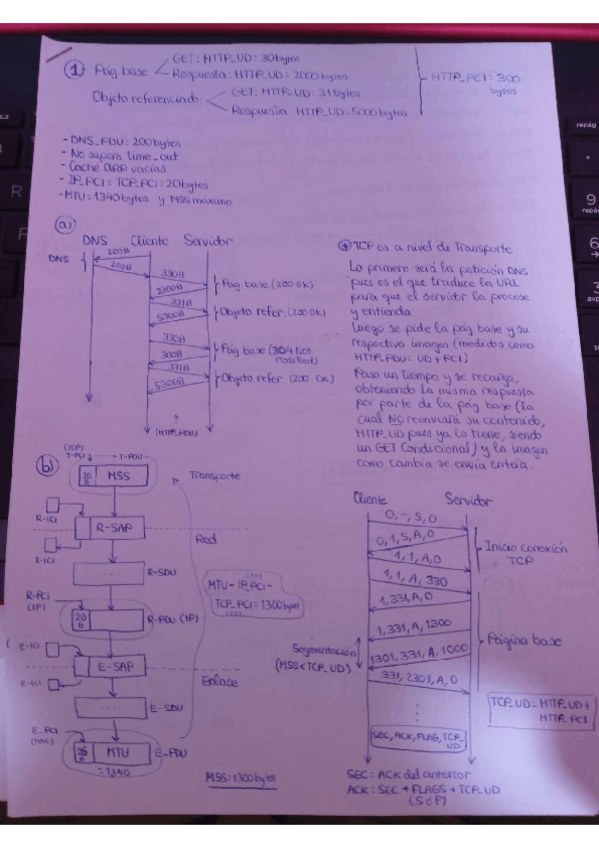 ① Pág base
GET: HTTP_UD: 30 bytes
Respuesta: HTTP_UD: 2000 bytes
Objeto referenciado
GET: HTTP_UD: 31 bytes
Respuesta: HTTP_UD=5000 bytes
HTTP_PCI=300 bytes
- DNS_PDU: 200 bytes
- No supera time_out
- Caché ARP vacías
- IP_PCI = TCP_PCI = 20 bytes
- MTU=1340 bytes y MSS máximo
a)
DNS Cliente Servidor
DNS
200B
200B
330B
2300B
Pág base (200 OK)
331B
5300B
Objeto refer. (200 OK)
330B
300B
Pág base (304 Not Modified)
331B
5300B
Objeto refer. (200 OK)
(HTTP_PDU)
TCP es a nivel de Transporte
Lo primero será la petición DNS
pues es el que traduce la URL
para que el servidor la procese
y entienda
Luego se pide la pág base y su
respectiva imagen (medidos como
HTTP_PDU = UD + PCI)
Pasa un tiempo y se recarga,
obteniendo la misma respuesta
por parte de la pág base (la
cual NO reenviará su contenido,
HTTP_UD pues ya lo tiene, siendo
un GET Condicional) y la imagen
como cambia se envía entera.
b)
(TCP)
T-PCI
T-PDU
20 B
MSS
Transporte
R-ICI
R-SAP
R-ICI
Red
R-SDU
R-PCI
(IP)
20 B
R-PDU (IP)
MTU - IP_PCI -
TCP_PCI = 1300 bytes
E-ICI
E-SAP
E-ICI
Enlace
E-SDU
E_PCI
(MAC)
MTU
E_PDU
=1340
MSS: 1300 bytes
Cliente Servidor
0, -, S, 0
0, 1, S, A, 0
1, 1, A, 0
Inicio conexión
TCP
1, 1, A, 330
1, 331, A, 0
1, 331, A, 1300
1301, 331, A, 1000
331, 2301, A, 0
Página base
Segmentación
(MSS<TCP_UD)
TCP_UD = HTTP_UD +
HTTP_PCI
SEC, ACK, FLAG, TCP_UD
SEC: ACK del anterior
ACK: SEC + FLAGS + TCP_UD
(S ó F)